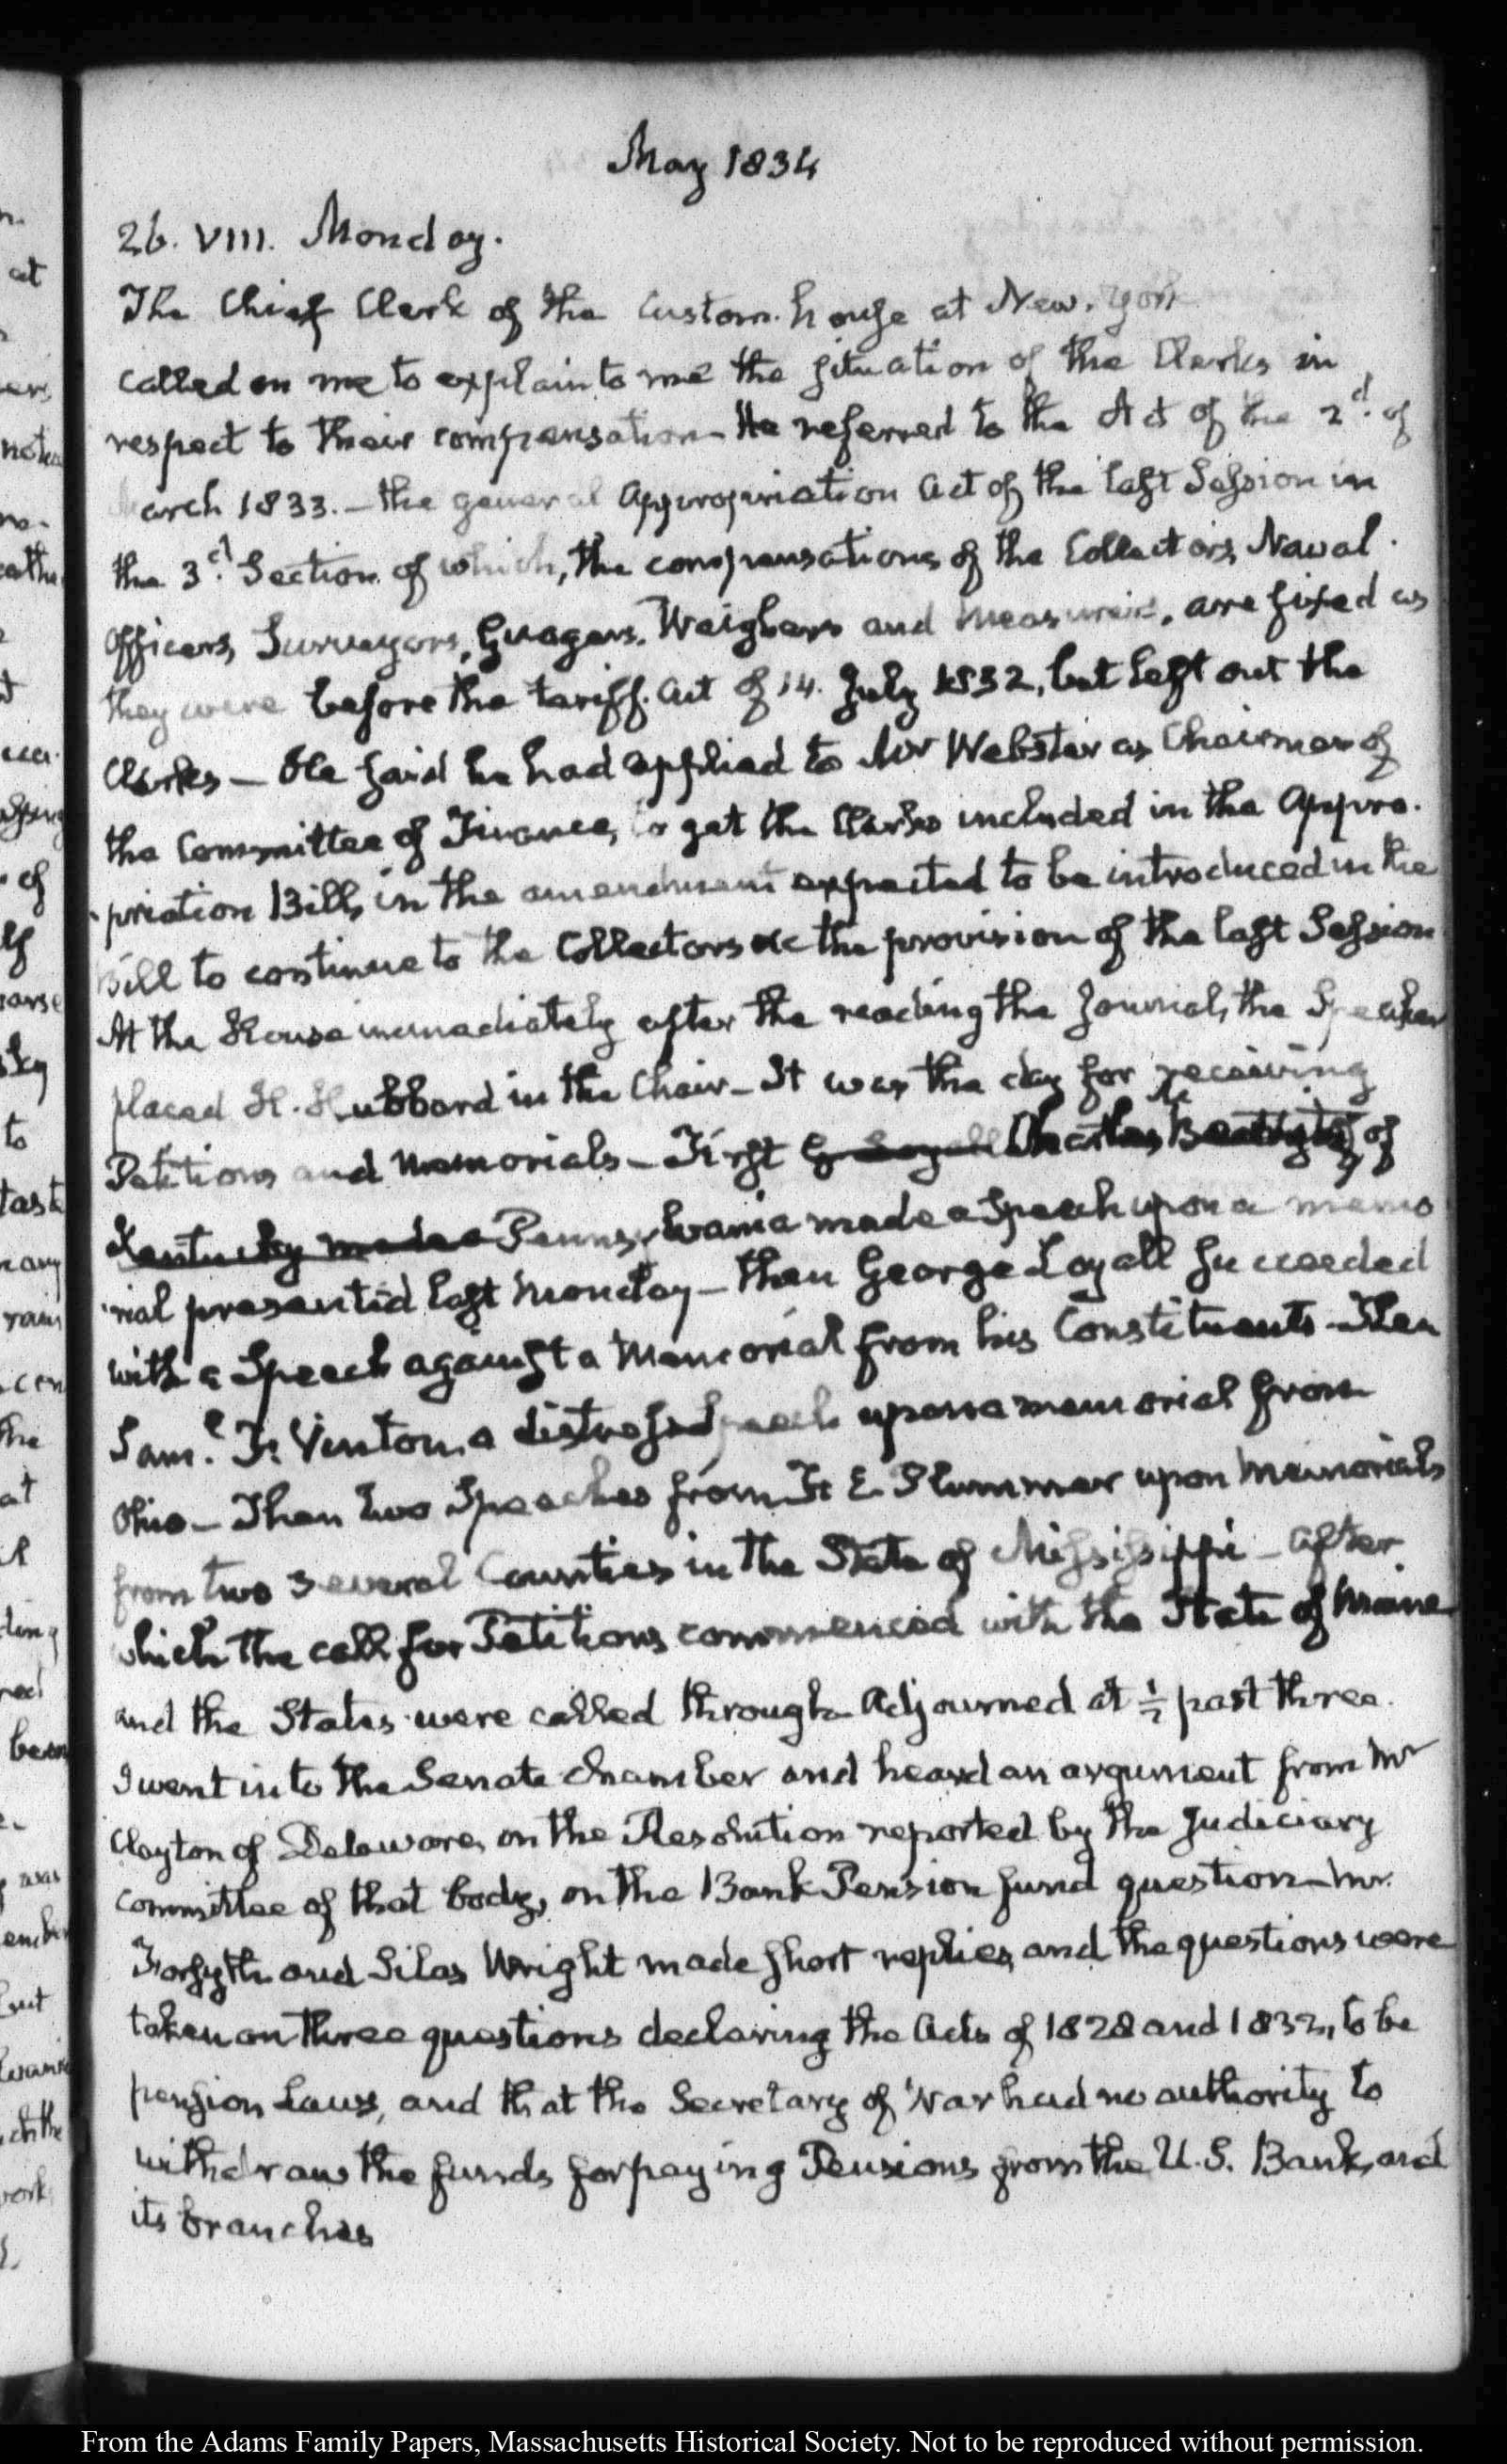 May 1834
26. VIII. Monday.
The Chief Clerk of the Custom-house at New-York
called on me to explain to me the situation of the Clerks in
respect to their compensation— He referred to the Act of the 2d. of
March 1833.— the general Appropriation Act of the last Session in
the 3d. Section of which, the compensations of the Collectors, Naval
Officers, Surveyors, Guagers, Weighers and Measurers, are fixed as
they were before the tariff Act of 14. July 1832, but left out the
Clerks— He said he had applied to Mr Webster as Chairman of
the Committee of Finance, to get the Clerks included in the Appro-
-priation Bill, in the amendment expected to be introduced in the
Bill to continue to the Collectors &c the provision of the last Session
At the House immediately after the reading the Journal, the Speaker
placed H. Hubbard in the Chair— It was the day for receiving
Petitions and Memorials— First G Loyall Charles of
Kentucky made Pennsylvania made a Speech upon a memo
-rial presented last Monday— then George Loyall succeeded
with a Speech against a Memorial from his Constituents— Then
Saml. F. Vinton, a distress speech upon a memorial from
Ohio— Then two Speeches from F. E. Plummer upon Memorials
from two several Counties in the State of Mississippi— after
which the call for Petitions commenced with the State of Maine
and the States were called through— Adjourned at ½ past three.
I went into the Senate Chamber and heard an argument from Mr
Clayton of Delaware, on the Resolution reported by the Judiciary
Committee of that body, on the Bank Pension fund question— Mr.
Forsyth and Silas Wright made short replies, and the questions were
taken on three questions declaring the Acts of 1828 and 1832, to be
pension Laws, and that the Secretary of War had no authority to
withdraw the funds for paying Pensions from the U.S. Bank, and
its branches
From the Adams Family Papers, Massachusetts Historical Society. Not to be reproduced without permission.